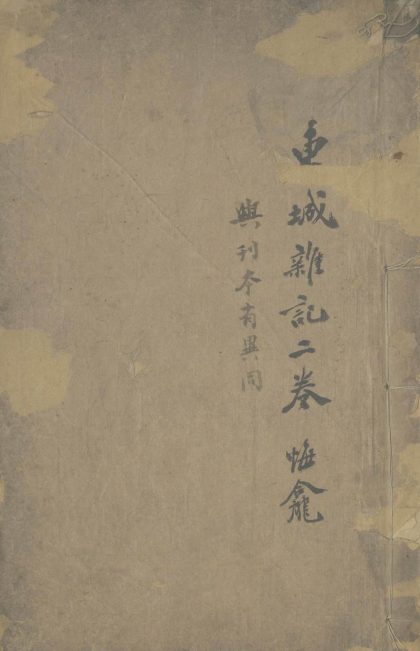 東城雜記二卷 悔龕
與刊本有異同